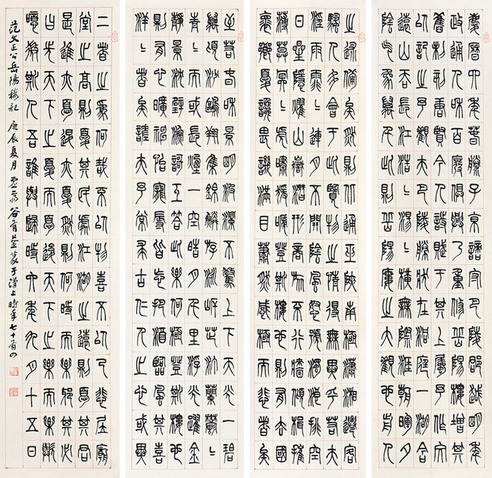 慶曆四年春滕子京謫守巴陵郡越明年
政通人和百廢具興乃重修岳陽樓增其
舊制刻唐賢今人詩賦于其上屬予作文
以記之予觀夫巴陵勝狀在洞庭一湖銜
遠山吞長江浩〻湯〻橫無際涯朝暉夕
陰氣象萬千此則岳陽樓之大觀也前人
之述備矣然則北通巫峽南極瀟湘遷客
騷人多會于此覽物之情得無異乎若夫
霪雨霏〻連月不開陰風怒號濁浪排空
日星隱曜山岳潛形商旅不行檣傾楫摧
薄暮冥〻虎嘯猿啼登斯樓也則有去國
懷鄉憂讒畏譏滿目蕭然感極而悲者矣
至若春和景明波瀾不驚上下天光一碧
萬頃沙鷗翔集錦鱗游泳岸芷汀蘭郁〻
青〻而或長煙一空皓月千里浮光躍金
靜影沉璧漁歌互答此樂何極登斯樓也
則有心曠神怡寵辱偕忘把酒臨風其喜
洋〻者矣嗟夫予嘗求古仁人之心或異
二者之為何哉不以物喜不以己悲居廟
堂之高則憂其民處江湖之遠則憂其君
是進亦憂退亦憂然則何時而樂耶其必
曰先天下之憂而憂後天下之樂而樂歟
噫微斯人吾誰與歸時六年九月十五日
范文正公岳陽樓記 庚辰夏月 谷有荃篆于漢上時年七十有四